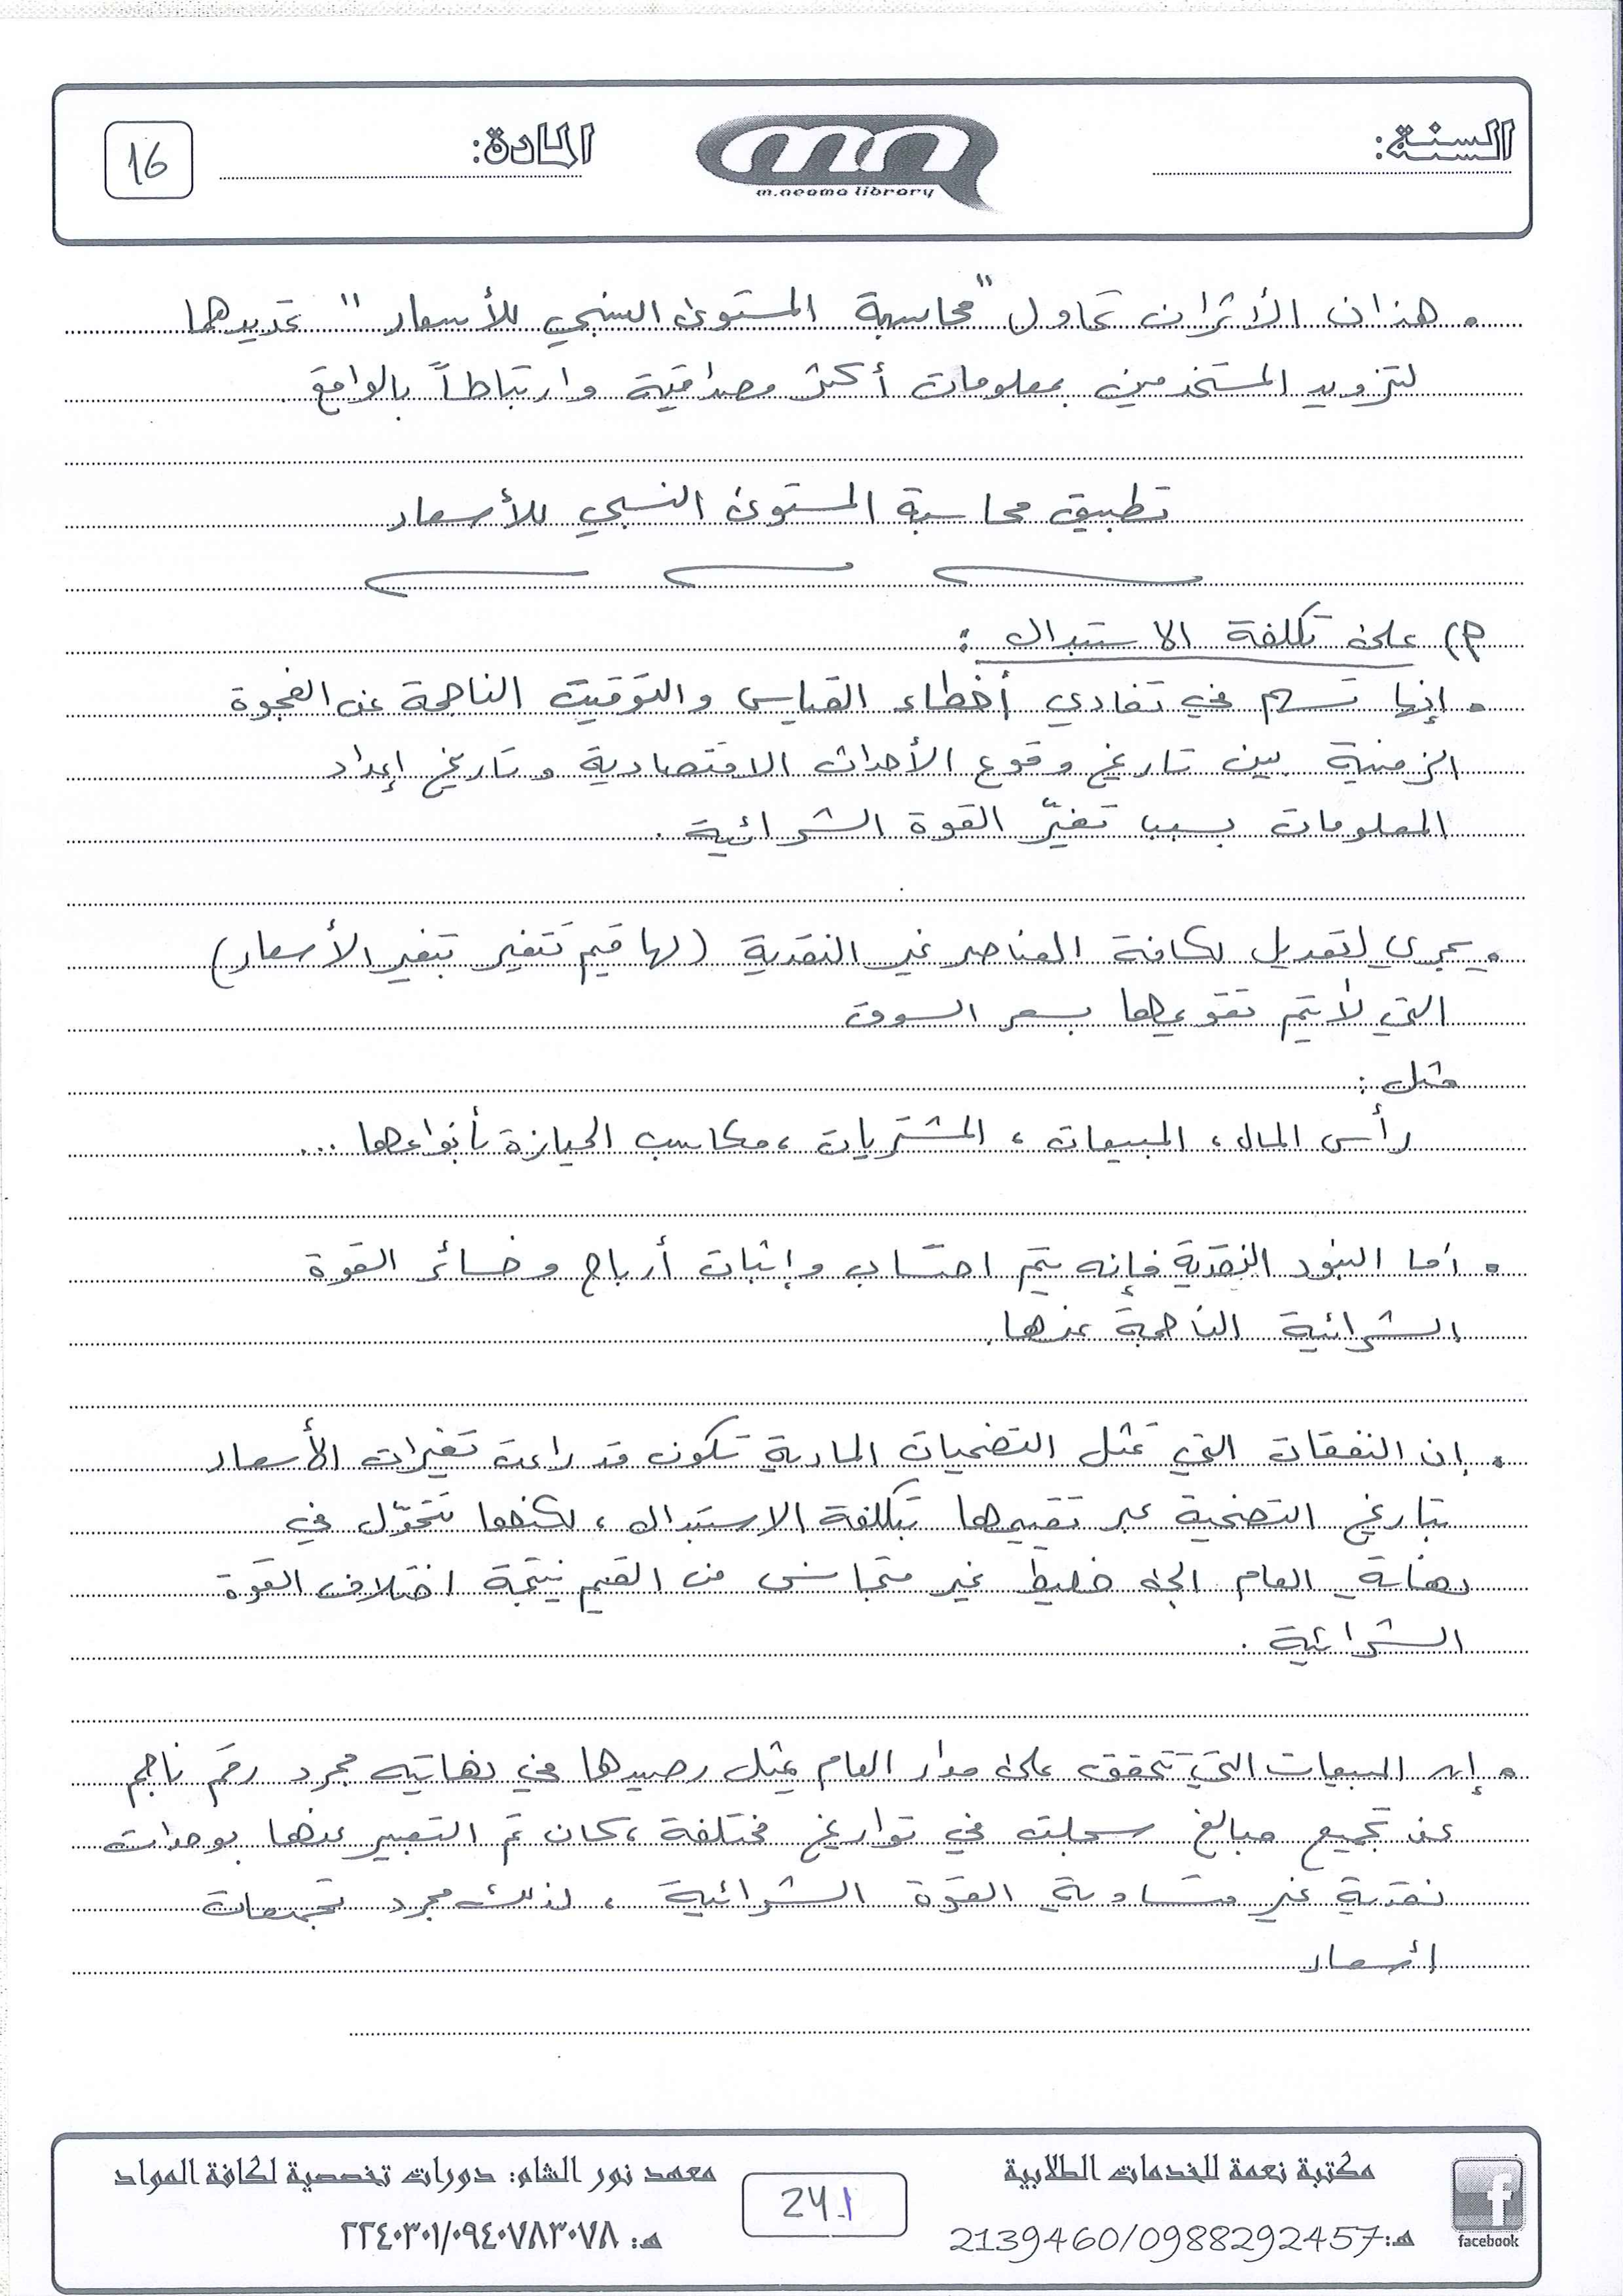 السنة:
m.neoma library
المادة:
16
. هذان الأثران تحاول "محاسبة المستوى النسبي للأسعار" تحديدهما
لتزويد المستخدمين بمعلومات أكثر مصداقية وارتباطاً بالواقع.
تطبيق محاسبة المستوى النسبي للأسعار
م) على تكلفة الاستبدال :
. إنها تسهم في تفادي أخطاء القياس والتوقيت الناجمة عن الفجوة
الزمنية بين تاريخ وقوع الأحداث الاقتصادية وتاريخ إعداد
المعلومات بسبب تغيّر القوة الشرائية .
. يجري تعديل لكافة العناصر غير النقدية (لها قيم تتغير بتغير الأسعار)
التي لا يتم تقويمها بسعر السوق
مثل :
رأس المال ، المبيعات ، المشتريات ، مكاسب الحيازة بأنواعها ...
. أما البنود النقدية فإنه يتم احتساب وإثبات أرباح وخسائر القوة
الشرائية الناجمة عنها.
. إن النفقات التي تمثل التضحيات المادية تكون قد راعت تغيرات الأسعار
بتاريخ التضحية عبر تقييمها بتكلفة الاستبدال ، لكنها تتحوّل في
نهاية العام إلى خليط غير متجانس من القيم نتيجة اختلاف القوة
الشرائية .
. إن المبيعات التي تتحقق على مدار العام يمثل رصيدها في نهايته مجرد رقم ناجم
عن تجميع مبالغ سجلت في تواريخ مختلفة ، كان تم التعبير عنها بوحدات
نقدية غير متساوية القوة الشرائية ، لذلك مجرد تجميعات
أسعار
facebook
مكتبة نعمة للخدمات الطلابية
هـ: 2139460/0988292457
241
معهد نور الشام: دورات تخصصية لكافة المواد
هـ: ٢٢٤٠٣٠١/٠٩٤٠٧٨٣٠٧٨